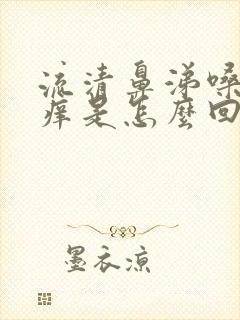 流清鼻涕嗓
痒是怎麼回
墨衣凉